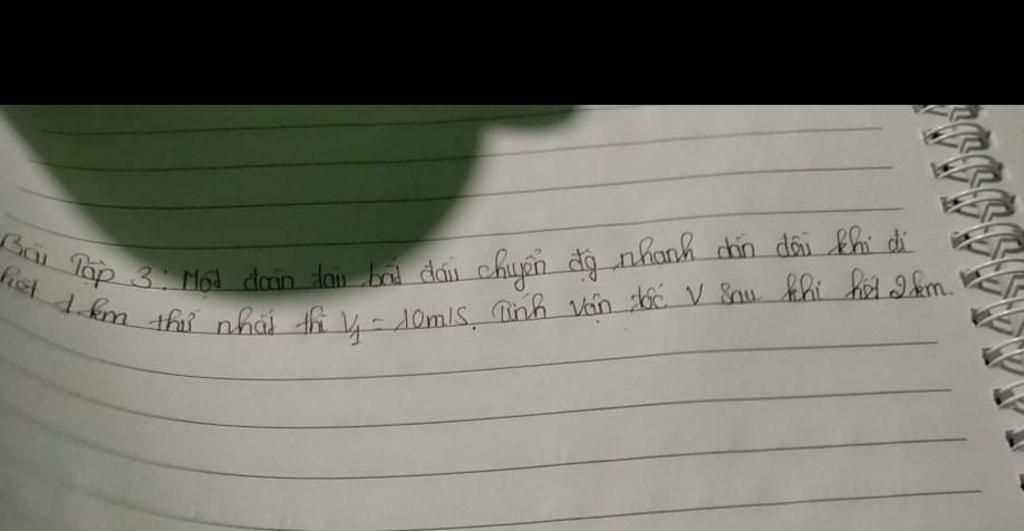 Bài Tập 3: Một đoàn tàu bắt đầu chuyển độ nhanh dần đều khi đi
hết 1 km thứ nhất thì V₁ = 10m/s. Tính vận tốc V sau khi hết 2km.